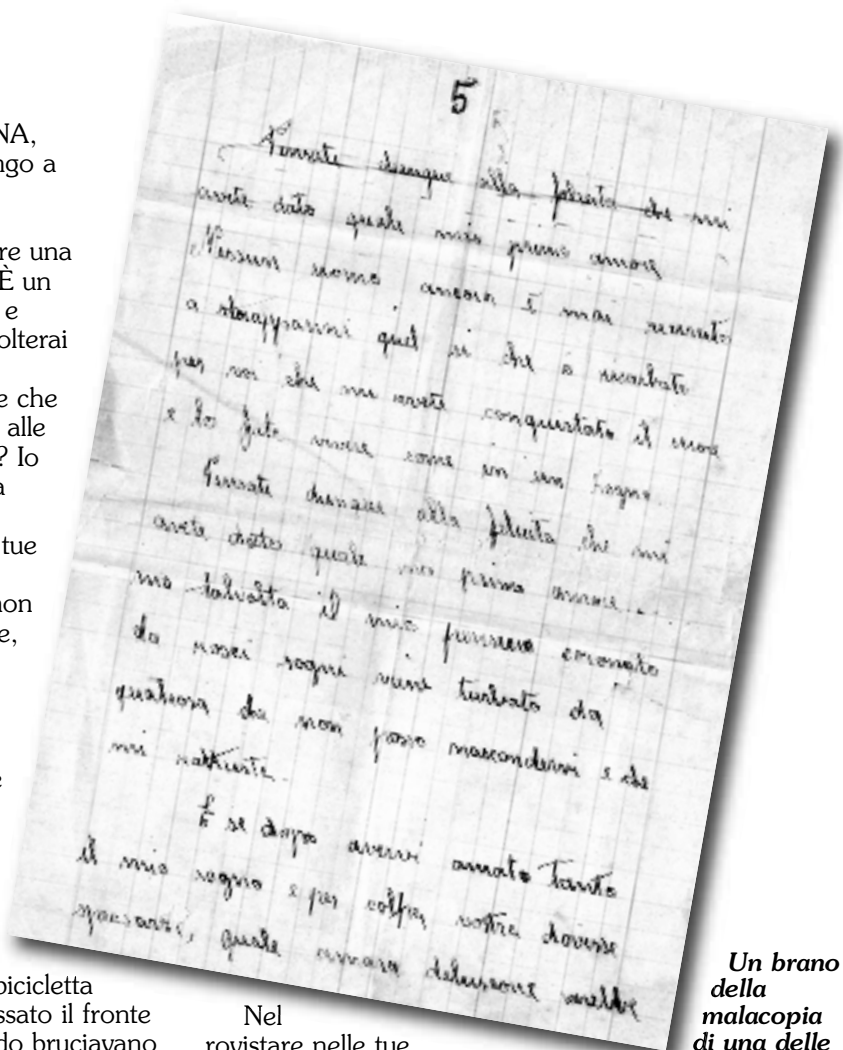 NA,
ngo a
re una
È un
e
olterai
e che
alle
? Io
a
tue
non
e,
e
bicicletta
ssato il fronte
do bruciavano
Nel
rovistare nelle tue
5
Pensate dunque alla felicità che mi
avete dato quale mio primo amore
Nessun uomo ancora è mai riuscito
a strapparmi quel si che ò riserbato
per voi che mi avete conquistato il cuore
e lo fate vivere come in un sogno.
Pensate dunque alla felicità che mi
avete dato quale mio primo amore...
ma talvolta il mio pensiero coronato
da rosei sogni viene turbato da
qualcosa che non posso nascondervi e che
mi rattrista.
E se dopo avervi amato tanto
il mio sogno e per colpa vostra dovesse
spezzarsi, quale amara delusione sarebbe
Un brano
della
malacopia
di una delle